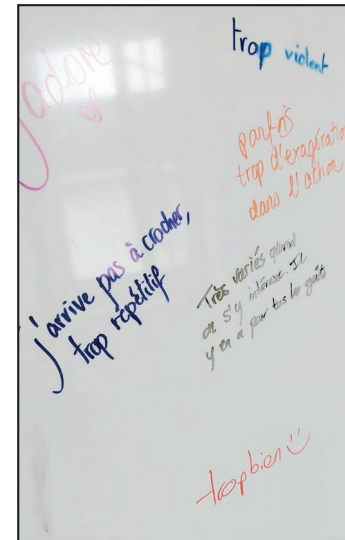 j'adore
trop violent
parfois
trop d'exagération
dans l'action
j'arrive pas à crocher,
trop répétitif
Très variés quand
on s'y intéresse. Il
y en a pour tous les goûts
trop bien